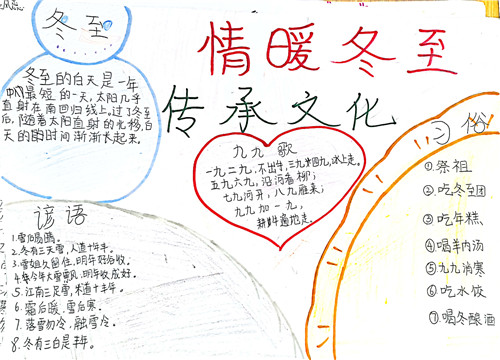 风点
冬至
冬至的白天是一年
中最短的一天,太阳几乎
直射在南回归线上,过了冬至
后,随着太阳直射的北移,白
天的时间渐渐长起来。
情暖冬至
传承文化
九九歌
一九二九,不出手,三九四九,冰上走。
五九六九,沿河看柳;
七九河开,八九雁来;
九九加一九,
耕牛遍地走。
谚语
1.雪伯易鸣。
2.冬有三天雪,人道十年丰。
3.雪姐久留住,明年好谷收。
4.今年大雪飘,明年收成好。
5.江南三足雪,米道十丰年。
6.霜后暖,雪后寒。
7.落雪勿冷,融雪冷。
8.冬有三白是丰年。
习俗
①祭祖
②吃冬至团
③吃年糕
④喝羊肉汤
⑤九九消寒
⑥吃水饺
⑦喝冬酿酒